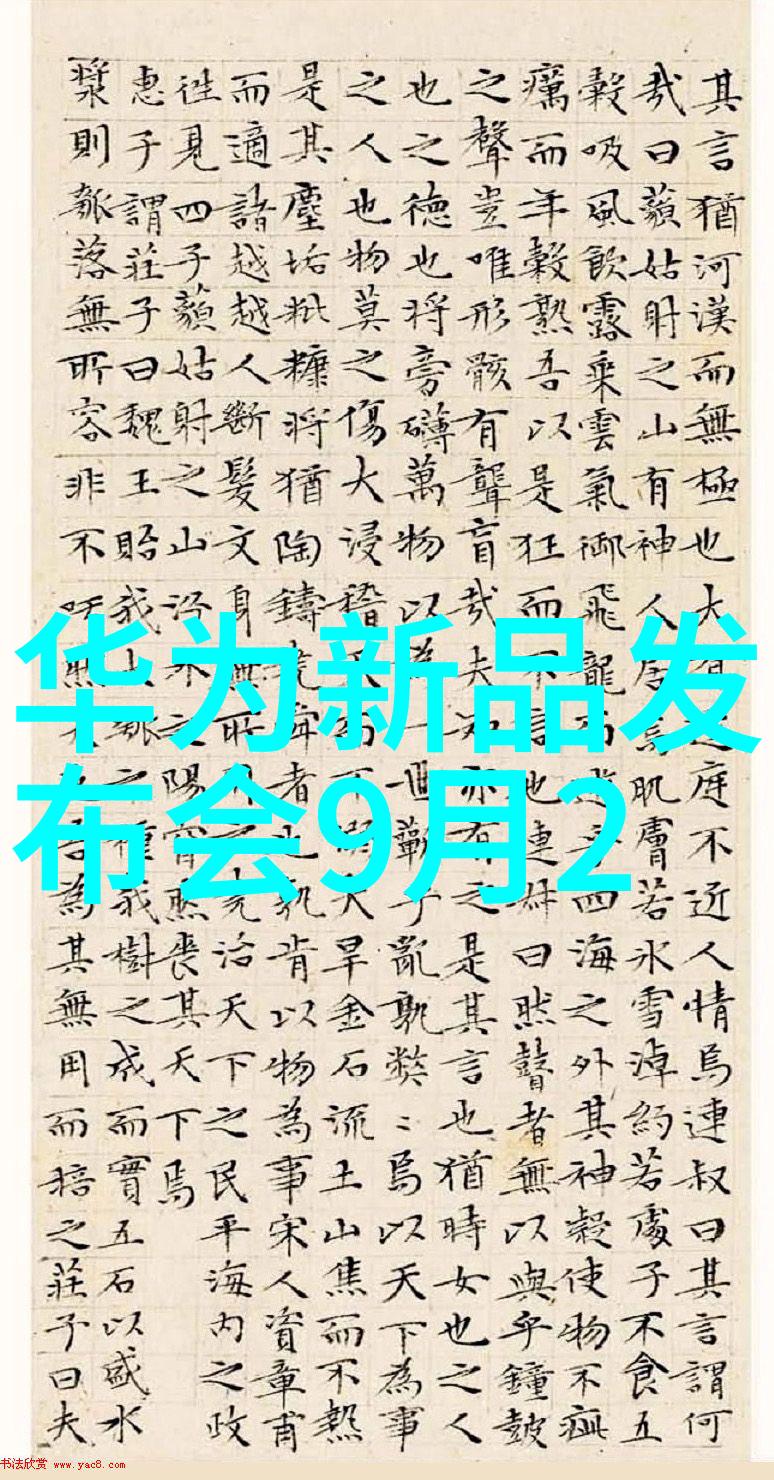 其言猶河漢而無極也大有逕庭不近人情焉連叔曰其言謂何
哉曰藐姑射之山有神人居焉肌膚若冰雪淖約若處子不食五
穀吸風飲露乘雲氣御飛龍而遊乎四海之外其神凝使物不疵
癘而年穀熟吾以是狂而不信也連叔曰然瞽者無以與乎鐘鼓
之聲豈唯形骸有聾盲哉夫知亦有之是其言也猶時女也之人
也之德也將旁礴萬物以為一世蘄乎亂孰弊〻焉以天下為事
之人也物莫之傷大浸稽天而不溺大旱金石流土山焦而不熱
是其塵垢粃糠將猶陶鑄堯舜者也孰肯以物為事宋人資章甫
而適諸越越人斷髮文身無所用之堯治天下之民平海内之政
往見四子藐姑射之山汾水之陽窅然喪其天下焉
惠子謂莊子曰魏王貽我大瓠之種我樹之成而實五石以盛水
漿則瓠落無所容非不呺然大也吾為其無用而掊之莊子曰夫
华为新品发
布会9月2
书法欣赏 www.yac8.com